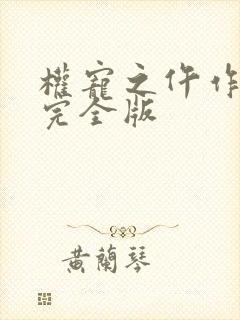 權寵之仵作
完全版
黃蘭琴